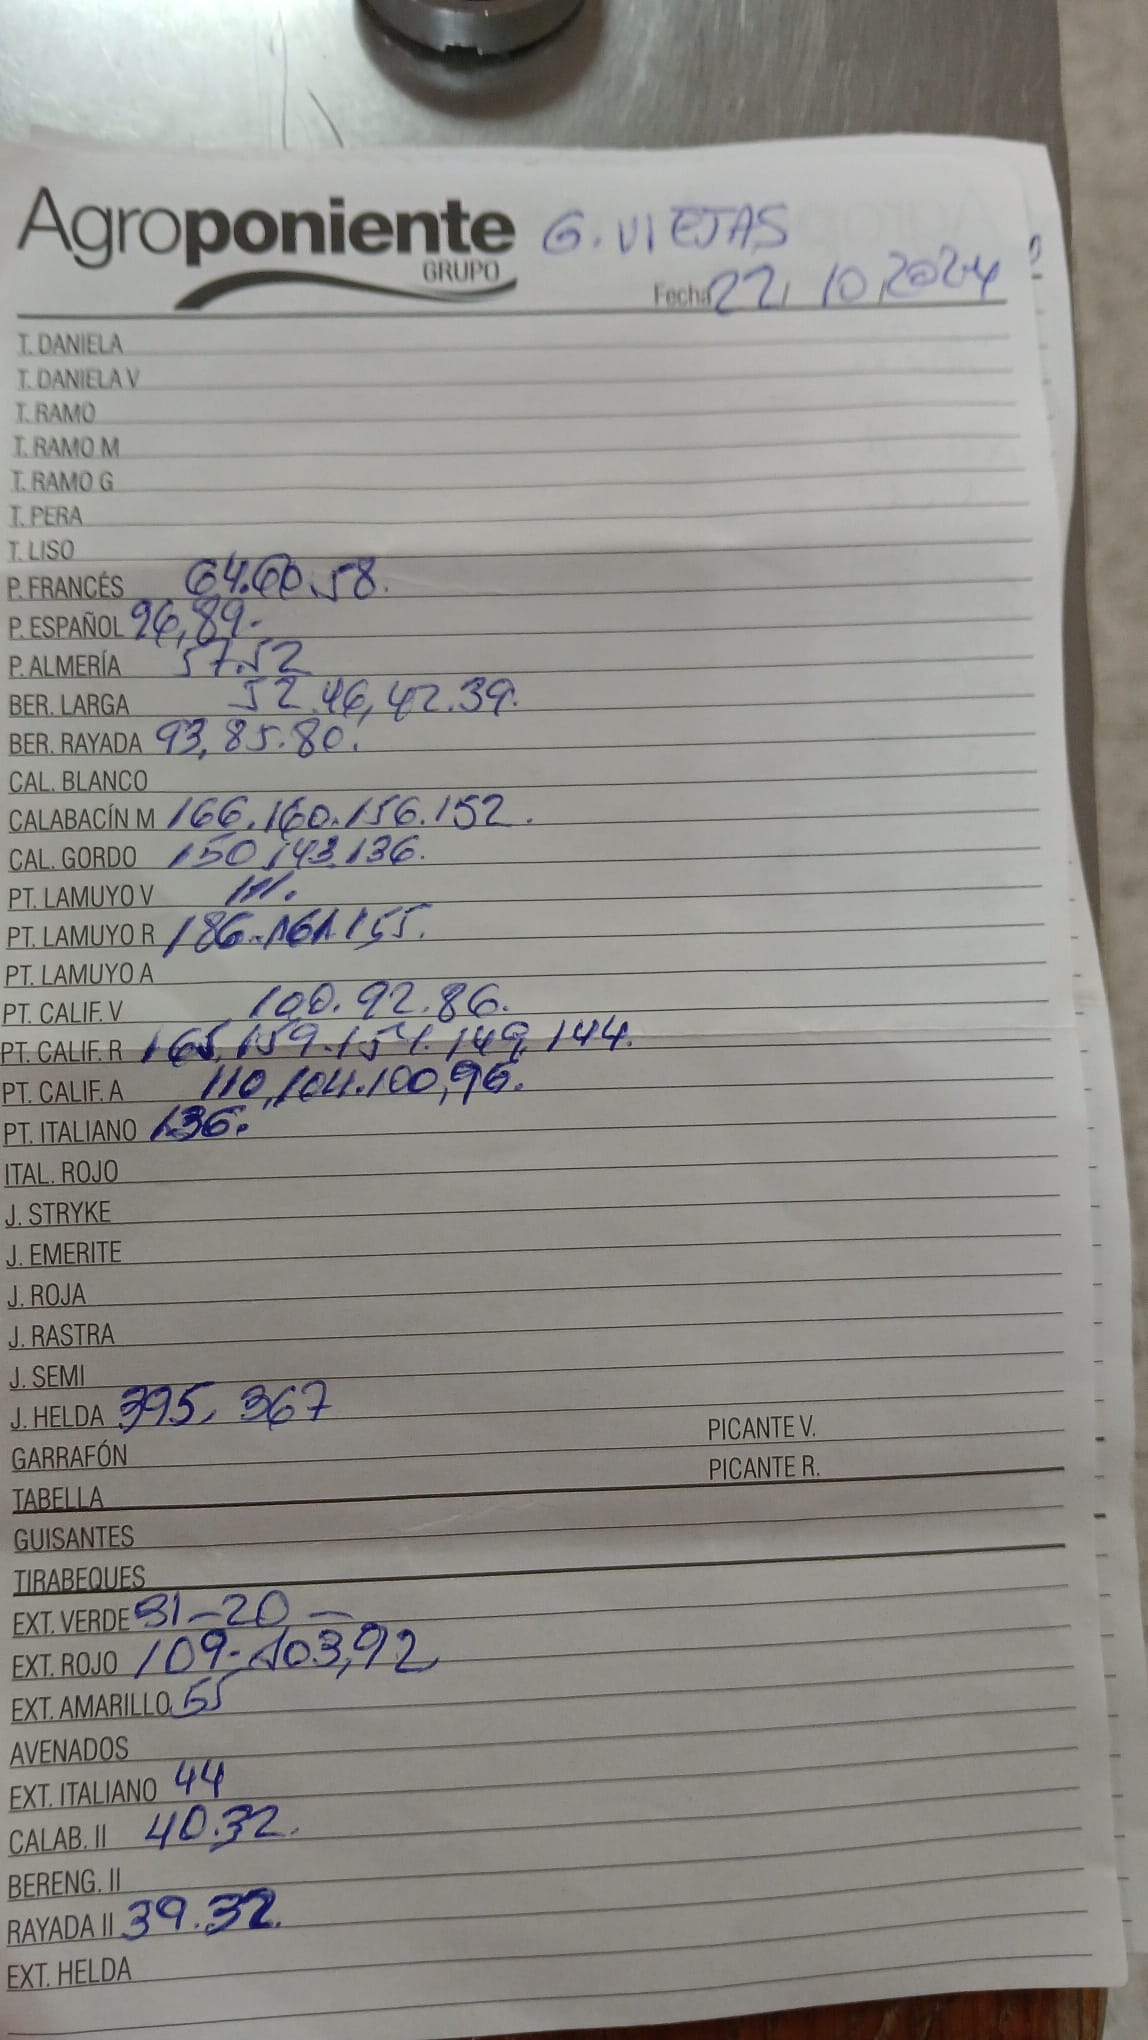 Agroponiente G. VIEJAS
GRUPO
Fecha 22, 10, 2024
T. DANIELA
T. DANIELA V
T. RAMO
T. RAMO M
T. RAMO G
T. PERA
T. LISO
P. FRANCÉS 64.60.58.
P. ESPAÑOL 96,89-
P. ALMERÍA 57.52
BER. LARGA 52.46,42.39.
BER. RAYADA 93,85.80.
CAL. BLANCO
CALABACÍN M 166.160.156.152.
CAL. GORDO 150,143,136.
PT. LAMUYO V 111.
PT. LAMUYO R 186-161.155.
PT. LAMUYO A
PT. CALIF. V 100.92.86.
PT. CALIF. R 165,159.154.149,144.
PT. CALIF. A 110,104.100,96.
PT. ITALIANO 136.
ITAL. ROJO
J. STRYKE
J. EMERITE
J. ROJA
J. RASTRA
J. SEMI
J. HELDA 395, 367
PICANTE V.
GARRAFÓN
PICANTE R.
TABELLA
GUISANTES
TIRABEQUES
EXT. VERDE 31-20-
EXT. ROJO 109-103,92,
EXT. AMARILLO 55
AVENADOS
EXT. ITALIANO 44
CALAB. II 40.32.
BERENG. II
RAYADA II 39.32.
EXT. HELDA